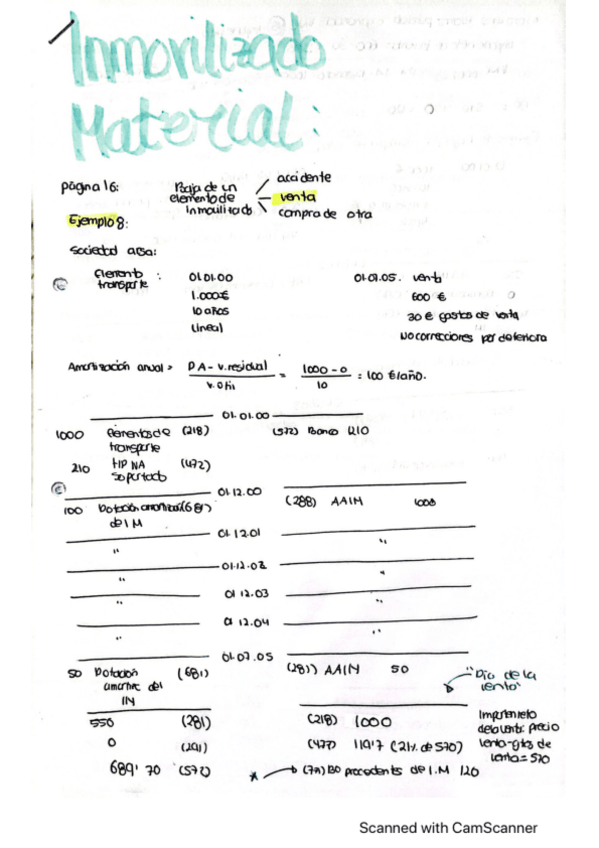 Inmovilizado
Material:
página 16: Baja de un elemento de inmovilizado
accidente
venta
compra de otra
Ejemplo 8:
Sociedad
Elemento transporte : 01.01.00
1.000€
10 años
Lineal
01.07.05. venta
600 €
30 € gastos de venta
No correcciones por deterioro
Amortización anual = PA - v.residual / v.útil = 1000 - 0 / 10 = 100 €/año.
01.01.00
1000 Elementos de transporte (218) (572) Banco 1210
210 HP IVA soportado (472)
01.12.00
100 Dotación amortizac (681) de IM (288) AAIM 1000
01.12.01
" "
01.12.02
" "
01.12.03
" "
01.12.04
" "
01.07.05
50 Dotación amortiz del IM (681) (281) AAIM 50
"Día de la venta"
550 (281) (218) 1000
0 (291) (477) 119'7 (21% de 570)
689'70 (572) * (771) BO procedentes de I.M 120
Importe neto de la venta: precio venta - gtos de venta = 570
Scanned with CamScanner